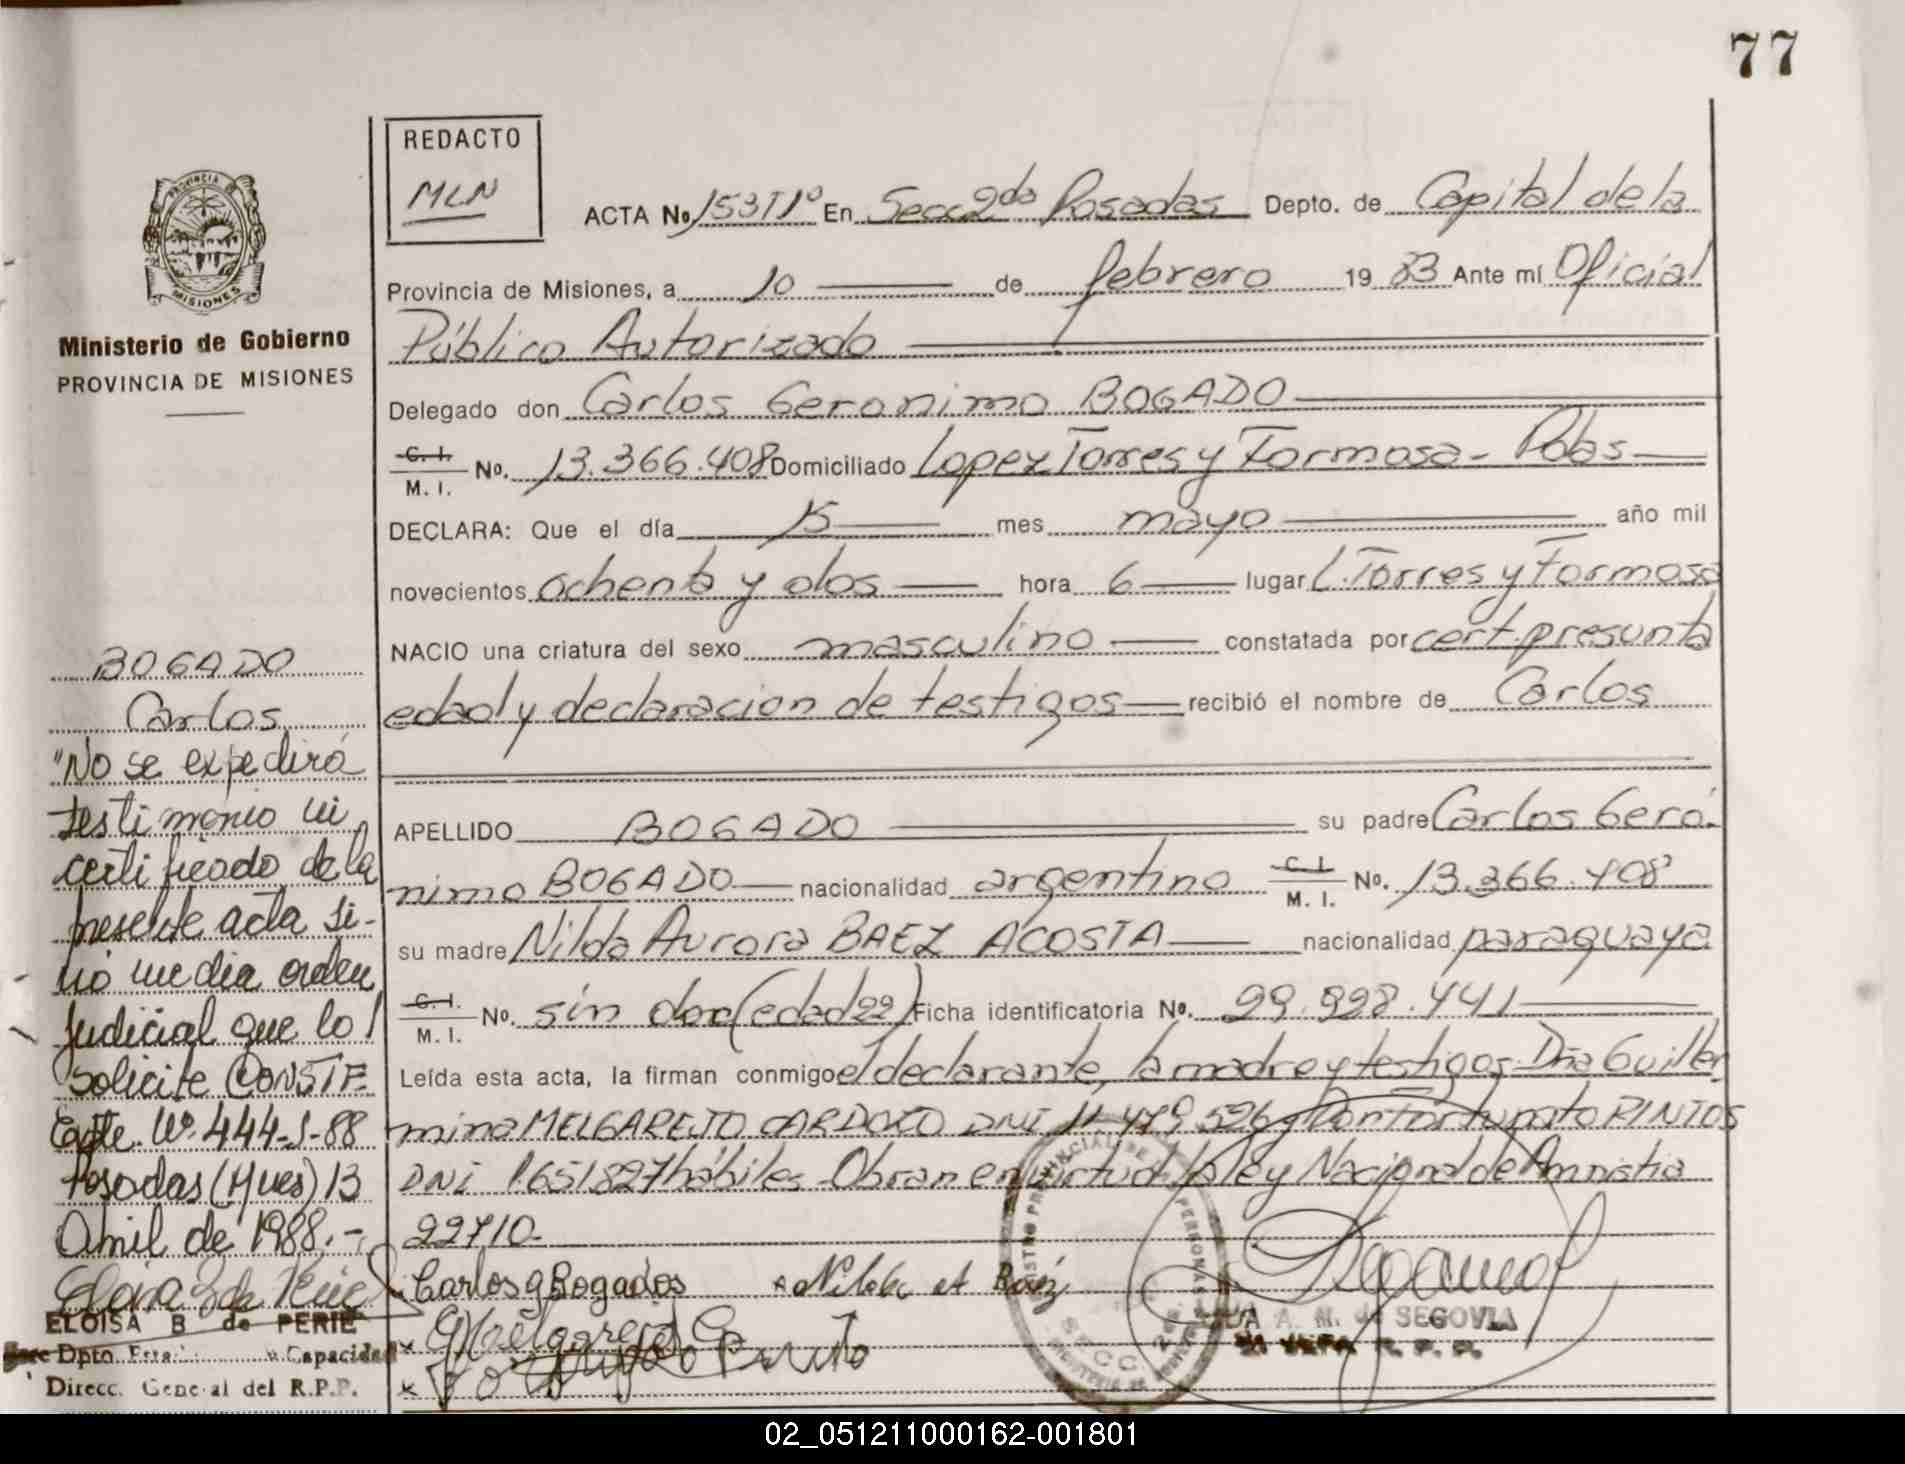 77
REDACTO
MLN
PROVINCIA DE
MISIONES
Ministerio de Gobierno
PROVINCIA DE MISIONES
ACTA No 153T1º En Secc 2da Posadas Depto. de Capital de la
Provincia de Misiones, a 10 de febrero 19 83 Ante mí Oficial
Público Autorizado
Delegado don Carlos Geronimo BOGADO
C. I. M. I. No. 13.366.408 Domiciliado Lopez Torres y Formosa - Pdas
DECLARA: Que el día 15 mes mayo año mil
novecientos ochenta y dos hora 6 lugar L. Torres y Formosa
NACIO una criatura del sexo masculino constatada por cert. presunta
edad y declaracion de testigos recibió el nombre de Carlos
APELLIDO BOGADO su padre Carlos Geró-
nimo BOGADO nacionalidad argentino C. I. M. I. No. 13.366.408
su madre Nilda Aurora BAEZ ACOSTA nacionalidad paraguaya
C. I. M. I. No. sin doc (edad 22) Ficha identificatoria No. 99.998.441
Leída esta acta, la firman conmigo el declarante, la madre y testigos Dña Guiller
mina MELGAREJO CARDOZO DNI 11.479.526 y Don Fortunato PINTOS
DNI 1.651.827 hábiles - Obran en virtud la ley Nacional de Amnistia
22710-
Carlos g Bogados Nilda A Baéz
G Melgarejo C
A. M. de SEGOVIA
BOGADO
Carlos
"No se expedirá
testimonio ni
certificado de la
presente acta si-
no media orden
judicial que lo
solicite CONSTE.
Expte. Nº 444-J-88
Posadas (Mnes) 13
Abril de 1988.-
ELOISA B de PERIE
Dpto. Capacidad
Direcc. General del R.P.P.
02_051211000162-001801